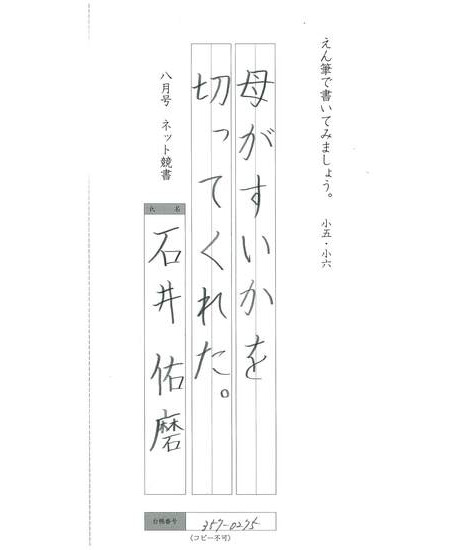 えん筆で書いてみましょう。 小五・小六
母がすいかを
切ってくれた。
八月号 ネット競書
氏 名
石井 佑磨
台帳番号
357-0275
(コピー不可)